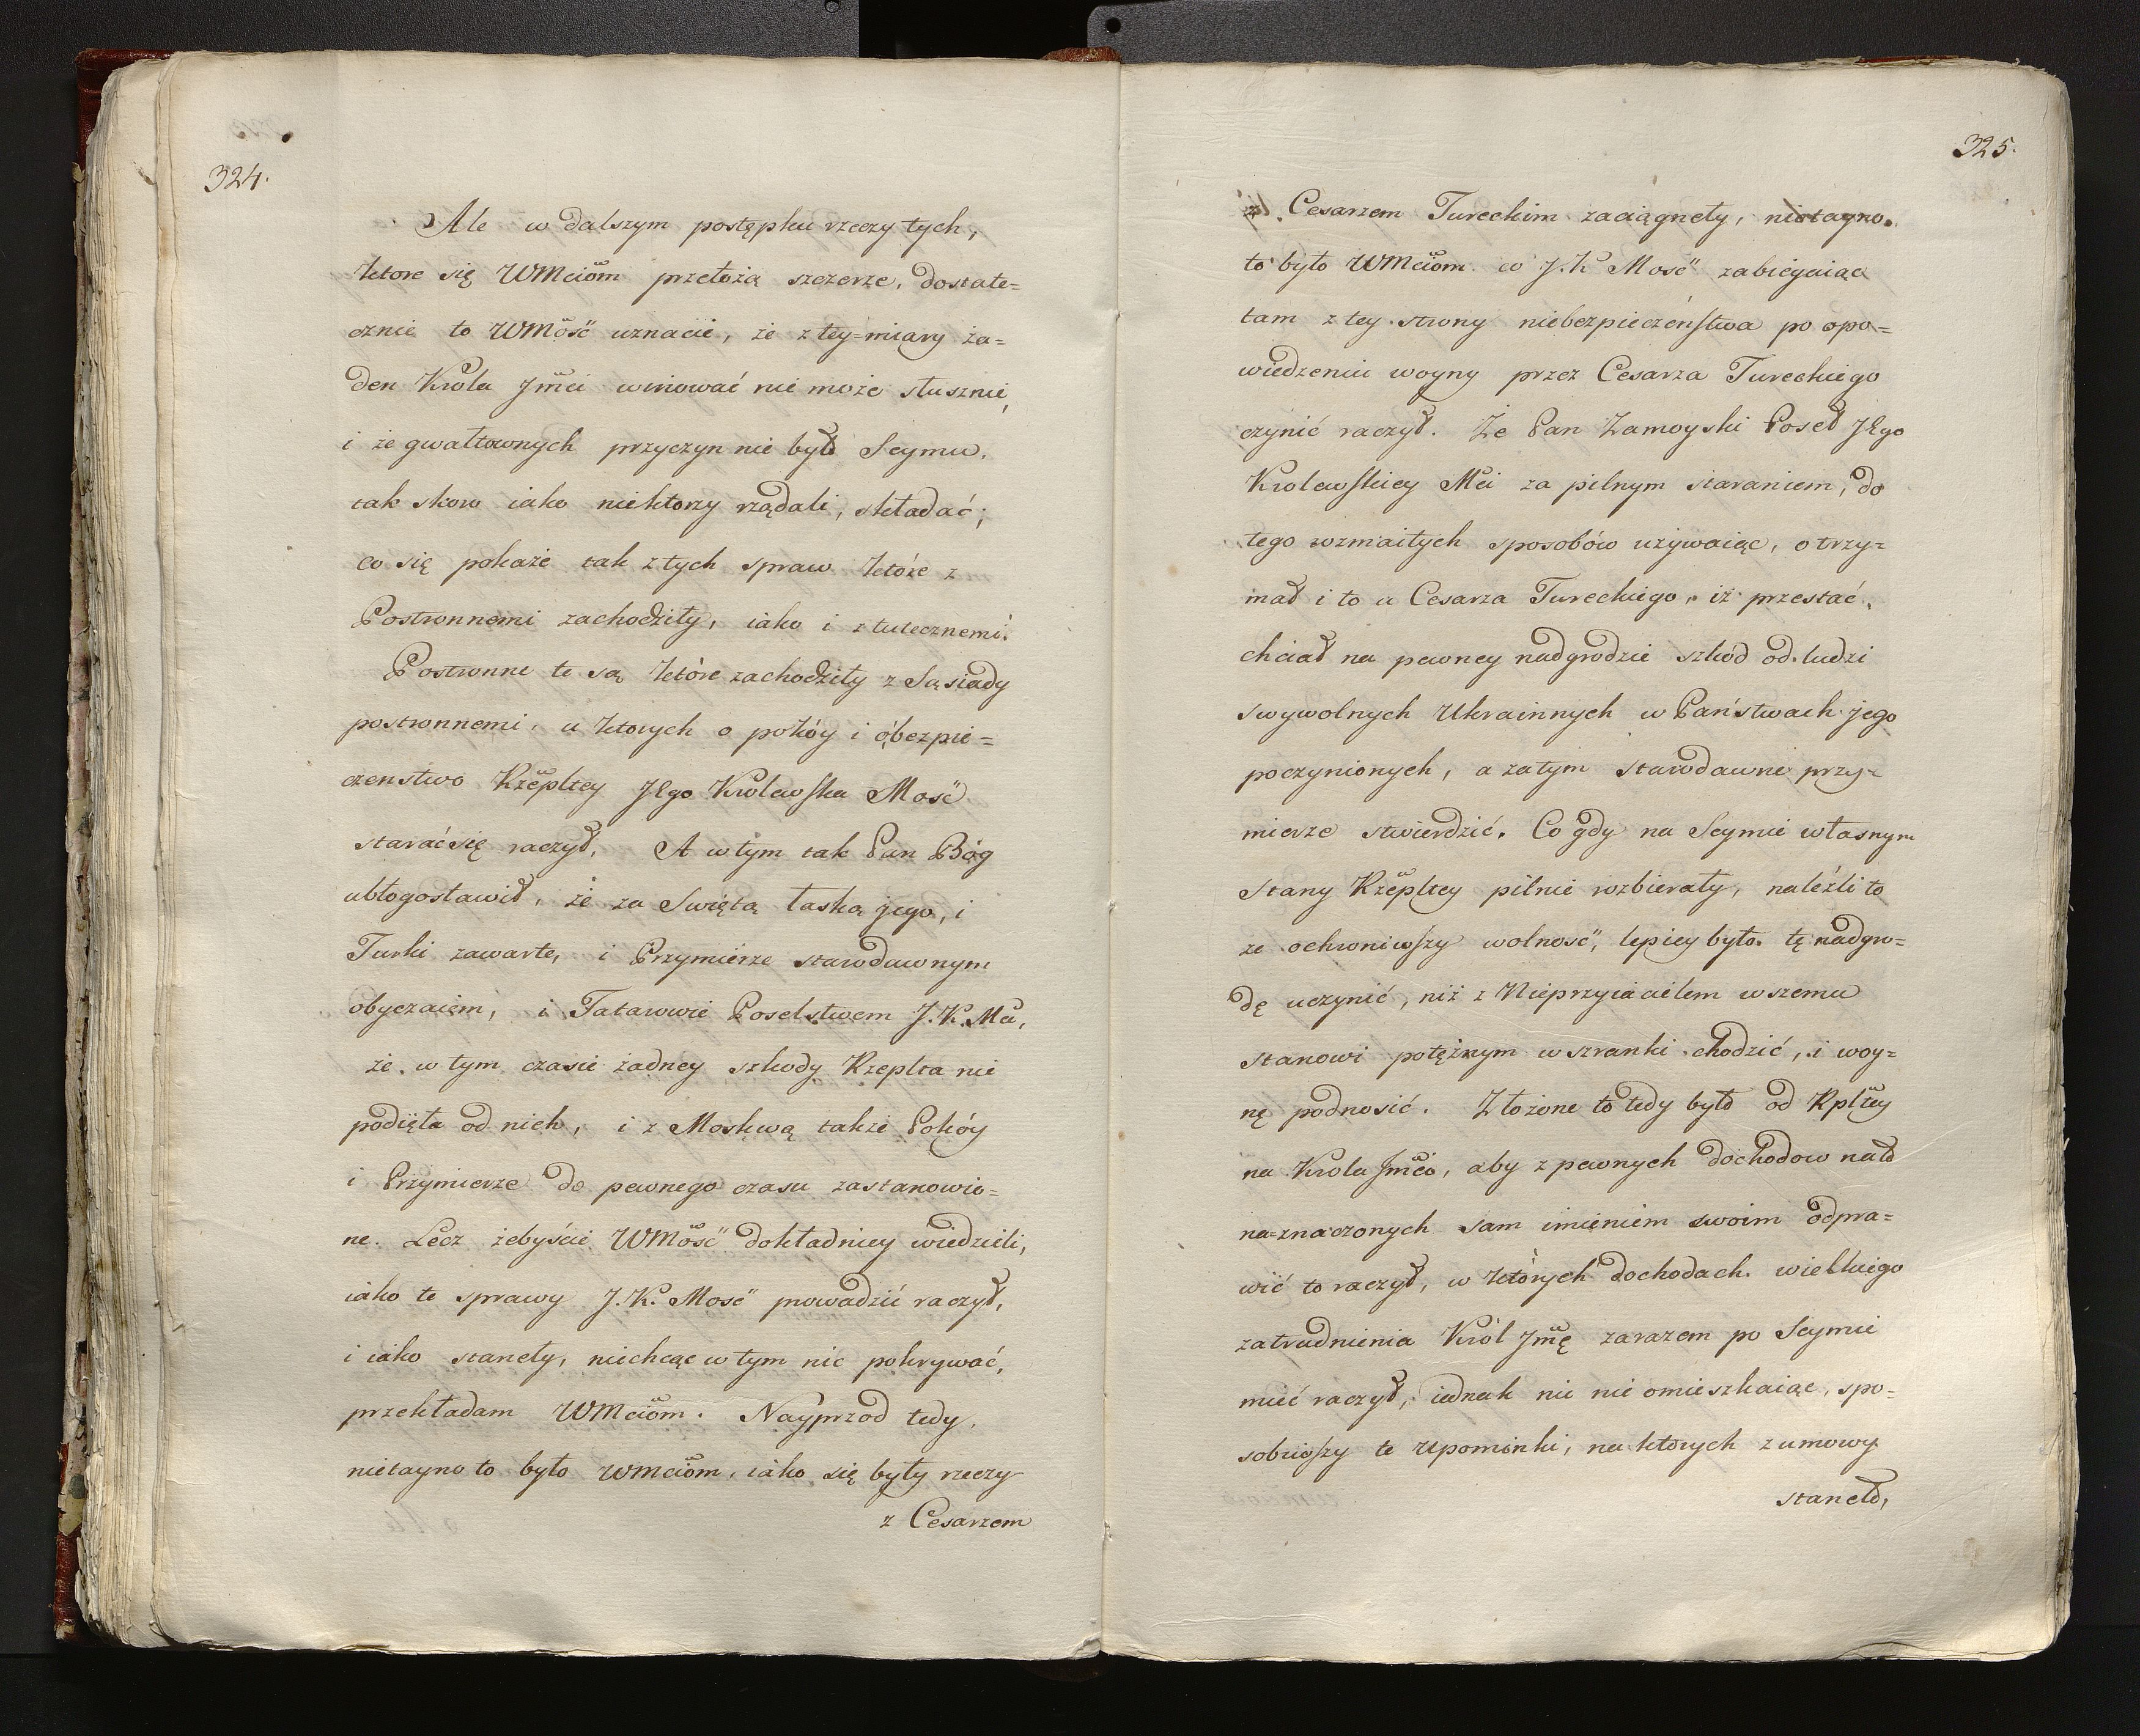 324.
Ale w dalszym postępku rzeczy tych,
ktore się WMciom przełożą szczerze, dostate=
cznie to WMość uznacie, że z tey=miary ża=
den Krola Jmci winować nie może słusznie,
i że gwałtownych przyczyn nie był Seymu,
tak skoro iako niektorzy rządali, składać;
co się pokaże tak z tych spraw które z
Postronnemi zachodziły, iako i z tutecznemi.
Postronne te są które zachodziły z Sąsiady
postronnemi, u ktorych o pokóy i óbezpie=
czenstwo Rzepltey JEgo Krolewska Mość
starać się raczył. A w tym tak Pan Bóg
ubłogosławił, że za Swiętą łaską jego, i
Turki zawarte, i Przymierze starodawnym
obyczaiem, i Tatarowie Poselstwem J. K. Mci,
że w tym czasie żadney szkody Rzeplta nie
podięła od nich, i z Moskwą także Pokóy
i Przymierze do pewnego czasu zastanowio=
ne. Lecz żebyście WMość dokładniey wiedzieli,
iako te sprawy J. K. Mość prowadzić raczył,
i iako stanęły, niechcąc w tym nic pokrywać,
przekładam WMciom. Nayprzod tedy
nietayno to było WMciom, iako się były rzeczy
z Cesarzem
325.
z Cesarzem Tureckim zaciągnęły, nietayno
to było WMciom co J. K Mość zabiegaiąc
tam z tey strony niebezpieczeństwa po opo=
wiedzeniu woyny przez Cesarza Tureckiego
czynić raczył. Że Pan Zamoyski Poseł JEgo
Krolewskiey Mci za pilnym staraniem, do
tego rozmaitych sposobów używaiąc, otrzy=
mał i to u Cesarza Tureckiego, iż przestać
chciał na pewney nadgrodzie szkód od ludzi
swywolnych Ukrainnych w Państwach jego
poczynionych, a zatym starodawne przy=
mierze stwierdzić. Co gdy na Seymie własnym
stany Rzepltey pilnie rozbierały, naleźli to
że ochroniwszy wolność, lepiey było tę nadgro=
dę uczynić, niż z Nieprzyiacielem wszemu
stanowi potężnym w szranki chodzić, i woy=
nę podnosić. Złożone to tedy było od Rpltey
na Krola Jmci, aby z pewnych dochodow nató
na=znaczonych sam imieniem swoim odpra=
wić to raczył, w których dochodach wielkiego
zatrudnienia Król Jmę zarazem po Seymie
mieć raczył, iednak nic nie omieszkaiąc, spo=
sobiwszy te upominki, na ktorych z umowy
stanęło,